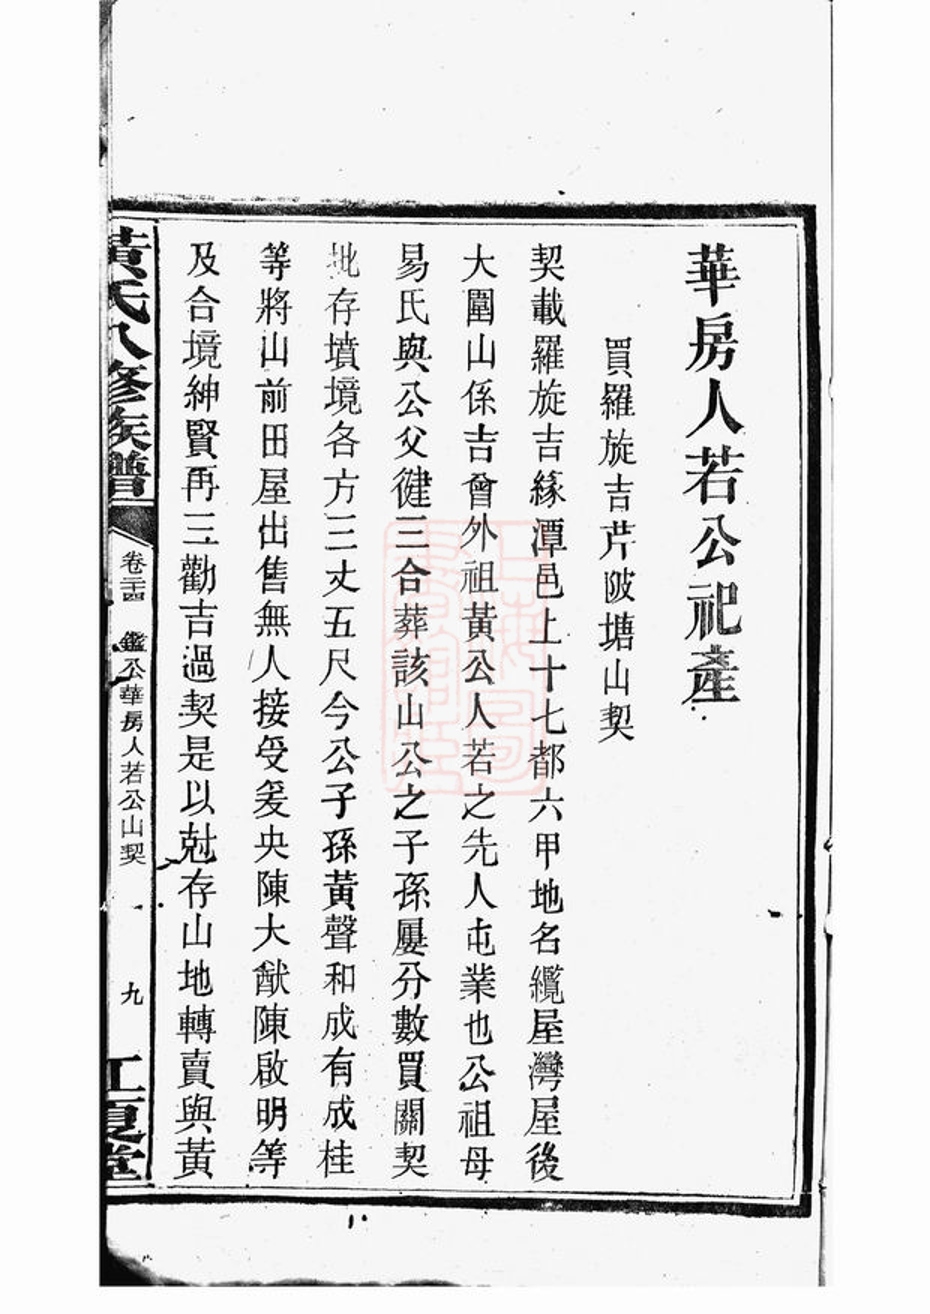 華房人若公祀產
買羅旋吉芹陂塘山契
契載羅旋吉緣潭邑上十七都六甲地名纜屋灣屋後
大圍山係吉曾外祖黃公人若之先人屯業也公祖母
易氏與公父徤三合葬該山公之子孫屢分數買關契
批存墳境各方三丈五尺今公子孫黃聲和成有成桂
等將山前田屋出售無人接受爰央陳大猷陳啟明等
及合境紳賢再三勸吉過契是以尅存山地轉賣與黃
黃氏八修族譜
卷二十四
鑑公華房人若公山契
九
江夏堂